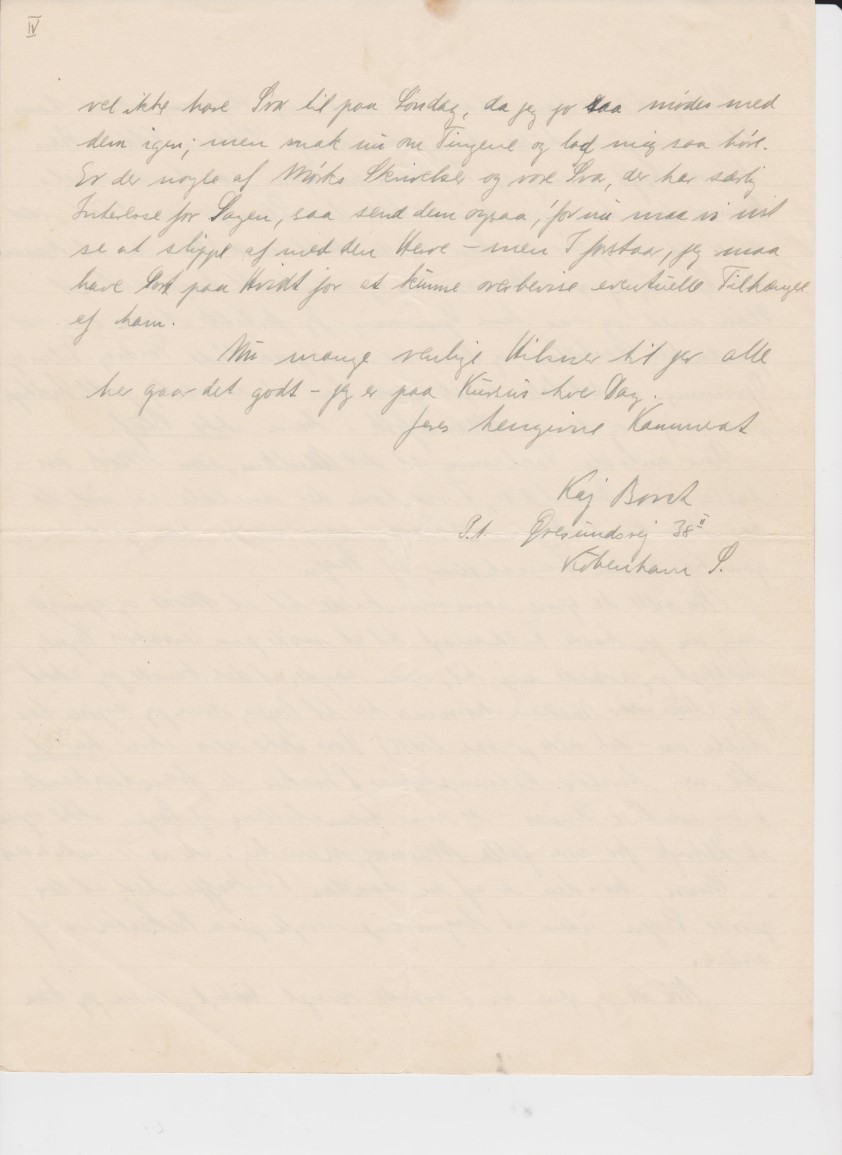 IV
vel ikke have Svar til paa Søndag, da jeg jo saa mødes med
dem igen; men snak nu om Tingene og lad mig saa høre.
Er der nogle af Mørks Skrivelser og vore Svar, der har særlig
Interesse for Sagen, saa send dem ogsaa, for nu maa vi
se at slippe af med den Herre – men I forstaar, jeg maa
have Sort paa Hvidt for at kunne overbevise eventuelle Tilhængere
af ham.
Nu mange venlige Hilsner til jer alle
her gaar det godt – jeg er paa Kursus hver Dag.
Jeres hengivne Kammerat
Kaj
P.t. Øresundsvej 38 II
København S.